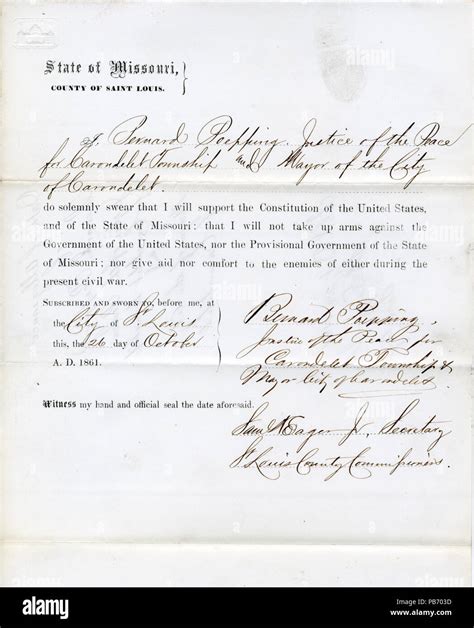 State of Missouri,
COUNTY OF SAINT LOUIS.
I, Bernard Poepping, Justice of the Peace
for Carondelet Township and Mayor of the City
of Carondelet
do solemnly swear that I will support the Constitution of the United States,
and of the State of Missouri; that I will not take up arms against the
Government of the United States, nor the Provisional Government of the State
of Missouri; nor give aid nor comfort to the enemies of either during the
present civil war.
SUBSCRIBED AND SWORN TO, before me, at
the City of St Louis
this, the 26 day of October
A. D. 1861.
Bernard Poepping
Justice of the Peace for
Carondelet Township &
Mayor City of Carondelet
Witness my hand and official seal the date aforesaid.
Saml H Eager Jr, Secretary
St Louis County Commissioners
alamy
Image ID: PB703D
www.alamy.com